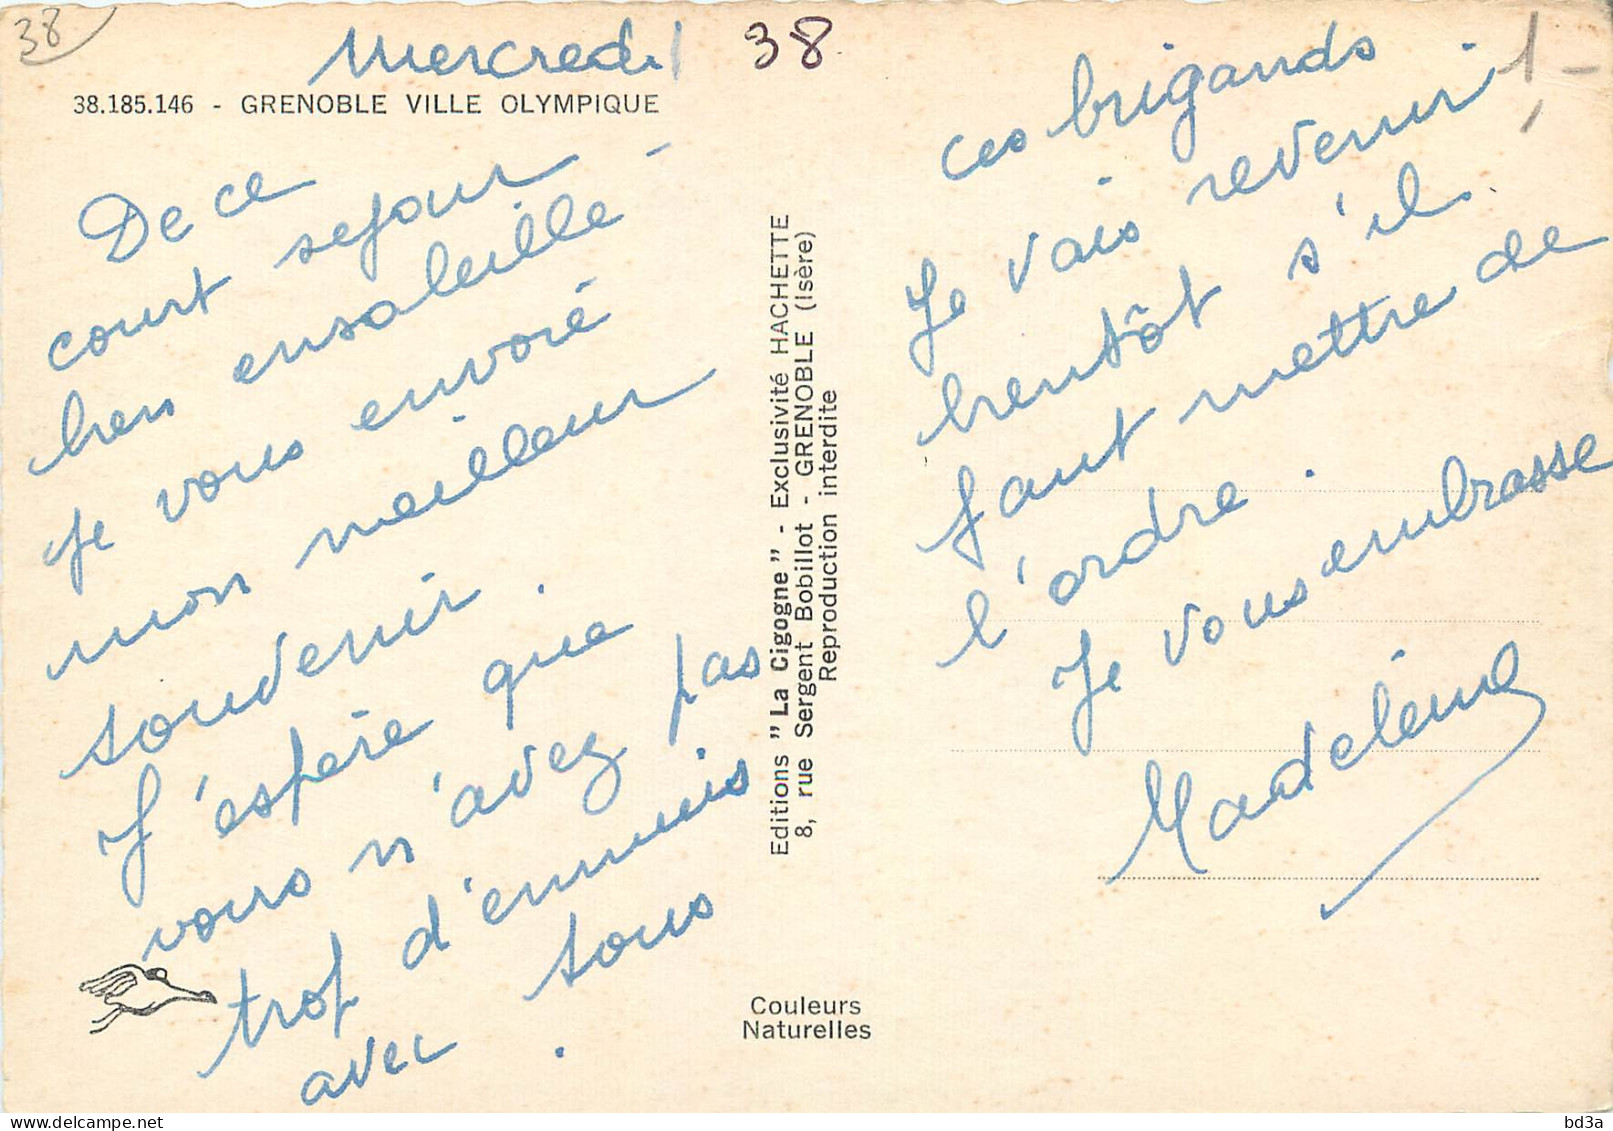 38
Mercredi
38
1-
38.185.146 - GRENOBLE VILLE OLYMPIQUE
De ce
court sejour
bien ensoleillé -
je vous envoie
mon meilleur
souvenir.
J'espère que
vous n'avez pas
trop d'ennuis
avec tous
ces brigands
Je vais revenir
bientôt s'il
faut mettre de
l'ordre.
Je vous embrasse
Madeleine
Editions "La Cigogne" - Exclusivité HACHETTE
8, rue Sergent Bobillot - GRENOBLE (Isère)
Reproduction interdite
Couleurs
Naturelles
delcampe.net
bd3a